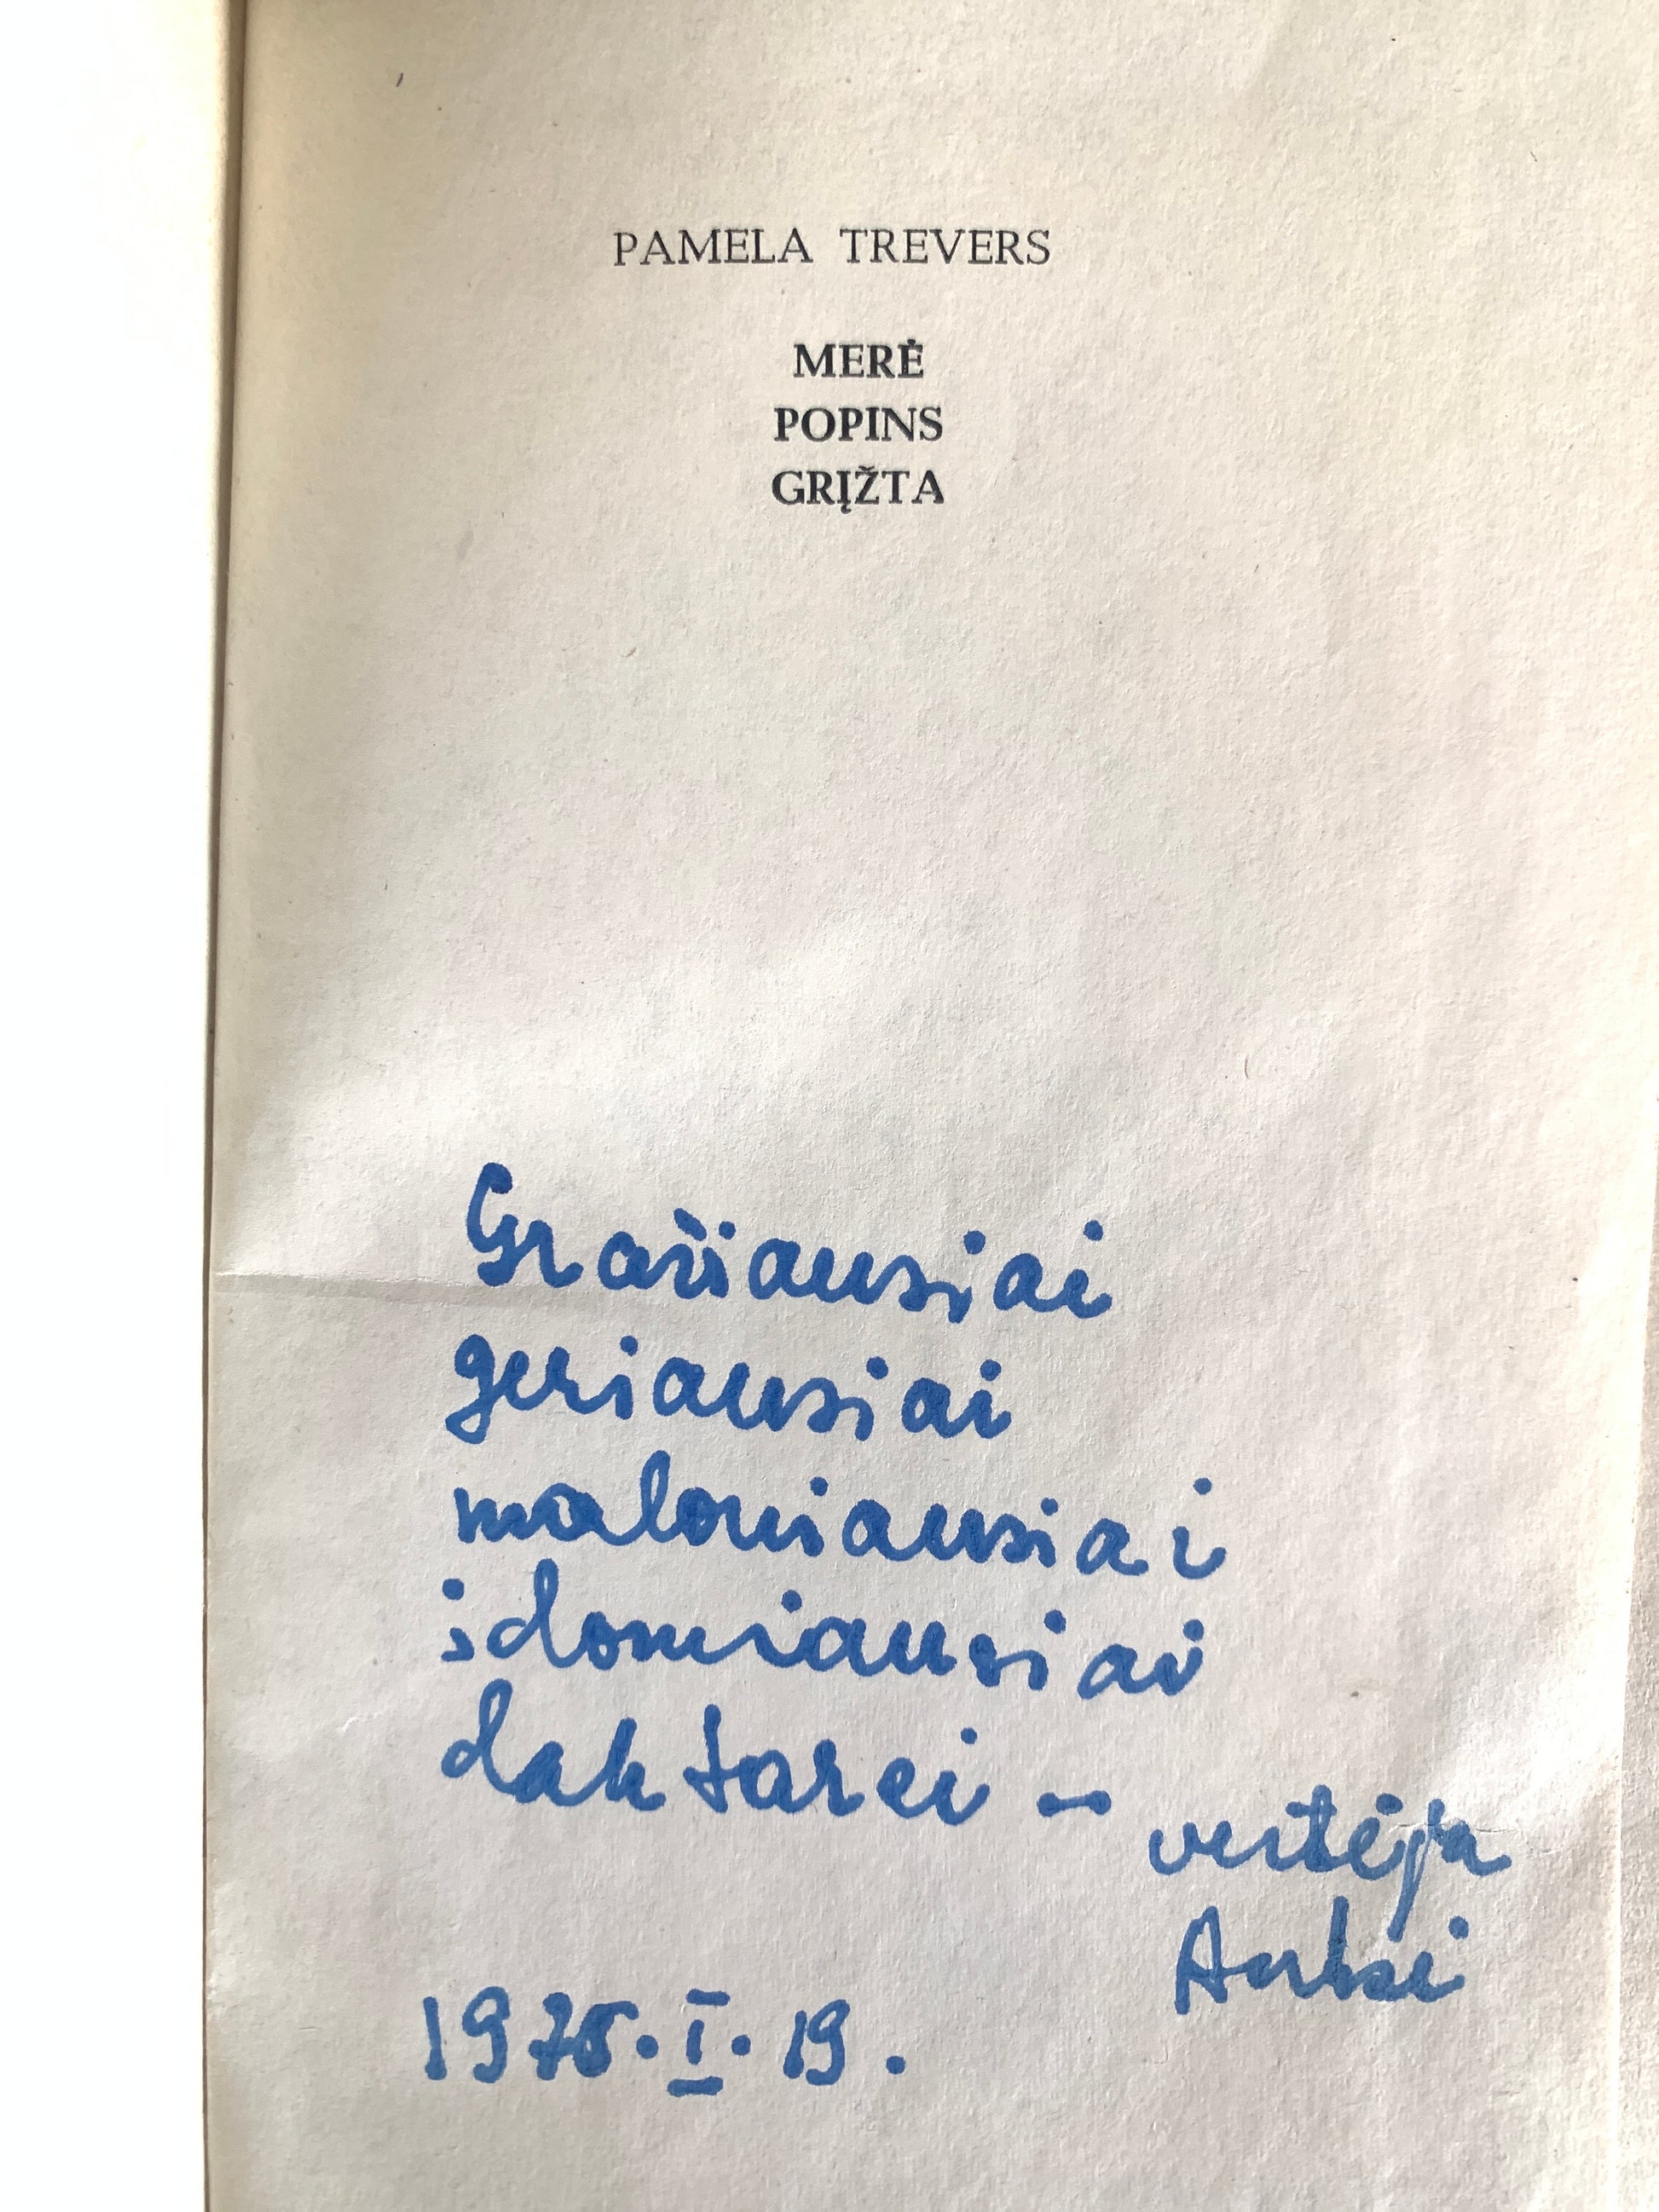 PAMELA TREVERS
MERĖ
POPINS
GRĮŽTA
Gražiausiai
geriausiai
maloniausiai
įdomiausiai
daktarei –
vertėja
1975.I.19.